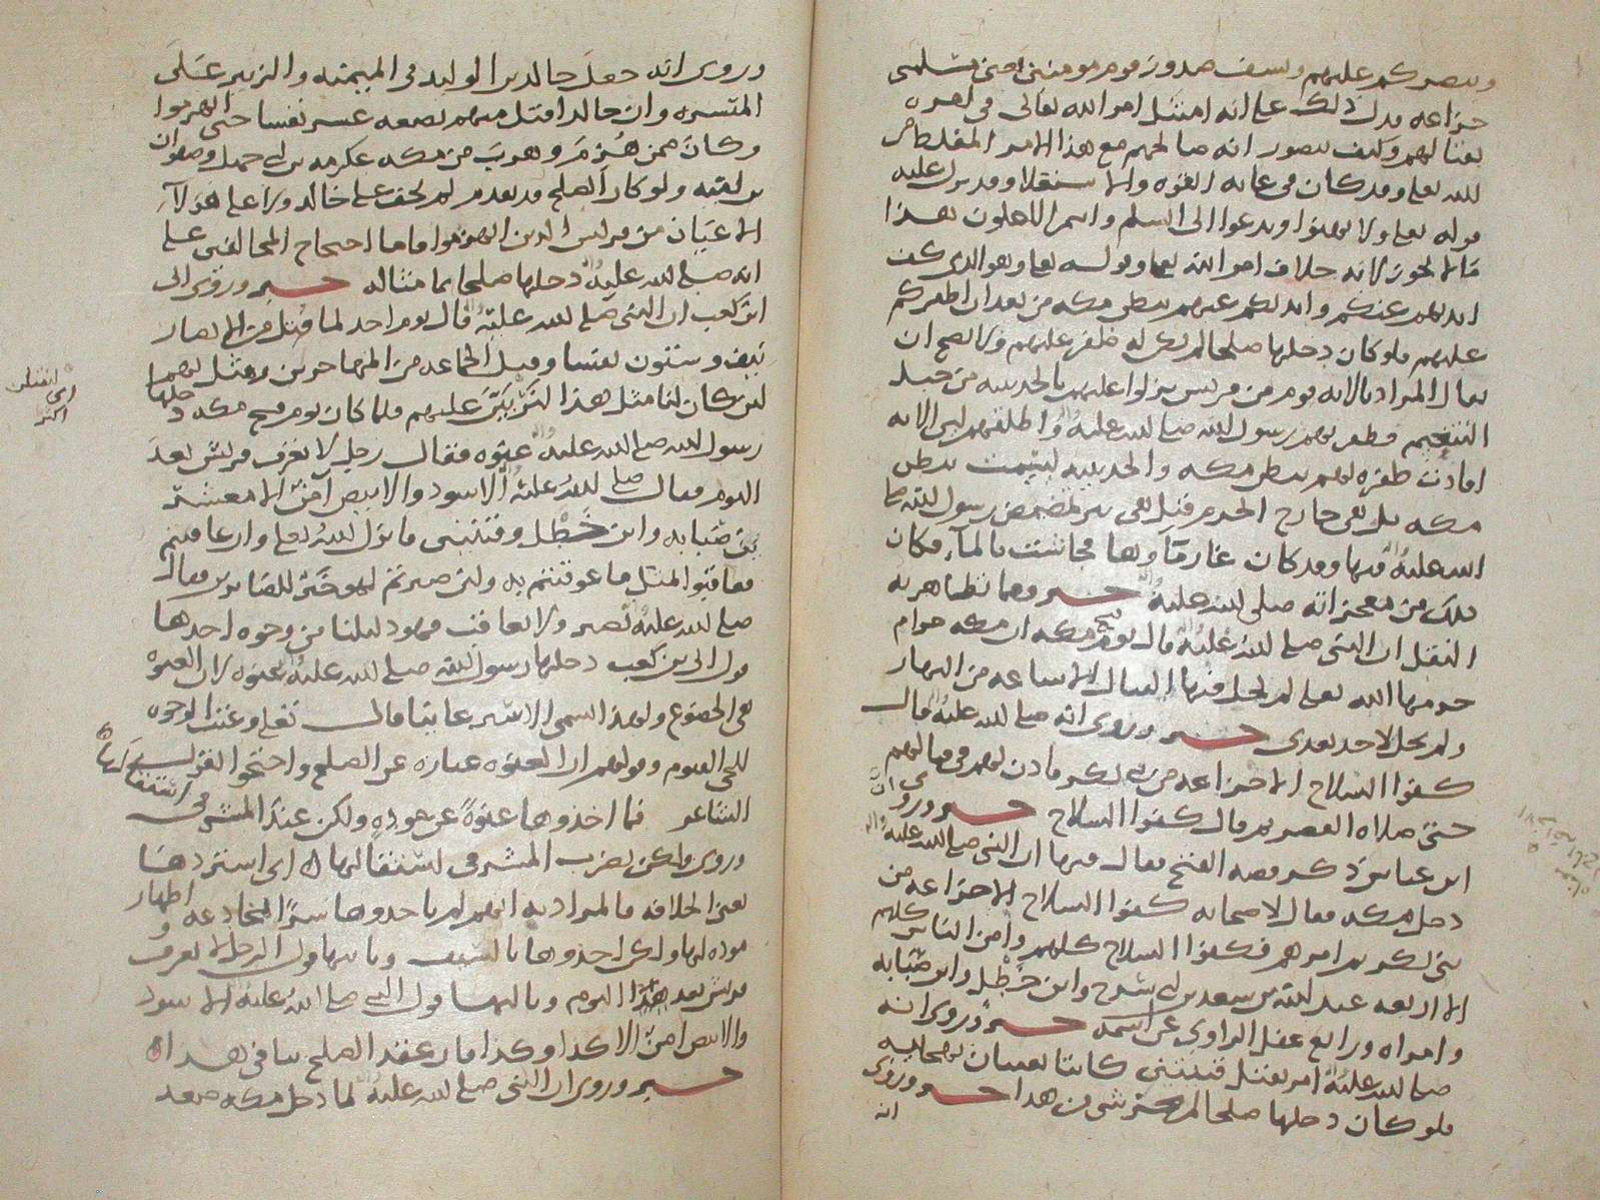 وينصركم عليهم ويشف صدور قوم مومنين حتى
خزاعه فدل ذلك على انه امتثل امر الله تعالى في
بقتالهم وكيف يتصور انه صالحهم مع هذا الامر
لله تعلى وقد كان في غايه القوه والاستقلال وقد نزل عليه
قوله تعلى ولا تهنوا وتدعوا الى السلم وانتم الاعلون هذا
مما لا يجوز لانه خلاف امر الله تعلى وقوله تعلى وهو الذي كف
ايديهم عنكم وايديكم عنهم ببطن مكه من بعد ان اظفركم
عليهم فلو كان دخلها صلحا لم يكن له ظفر عليهم ولا يصح ان
يقال المراد بالايه قوم من قريش نزلوا عليهم بالحديبيه من جبل
التنعيم فظفر بهم رسول الله صلى الله عليه واله واطلقهم لان الايه
افادت ظفره بهم ببطن مكه والحديبيه ليست ببطن
مكه بل هي خارج الحرم قيل هي بير تمضمض رسول الله صلى
الله عليه فيها وقد كان غار ماؤها فجاشت بالماء فكان
ذلك من معجزاته صلى الله عليه خبر ومما تظاهر به
النقل ان النبي صلى الله عليه قال يوم فتح مكه ان مكه حرام
حرمها الله تعلى لم يحل فيها القتال الا ساعه من النهار
ولم يحل لاحد بعدي خبر وروي انه صلى الله عليه قال
كفوا السلاح الا خزاعه من بني بكر فاذن لهم في قتالهم
حتى صلاه العصر ثم قال كفوا السلاح خبر وروي ان
ابن عباس ذكر قصه الفتح فقال فيها ان النبي صلى الله عليه
دخل مكه فقال لاصحابه كفوا السلاح الا خزاعه من
بني بكر ثم امرهم فكفوا السلاح كلهم وامن الناس كلهم
الا اربعه عبد الله بن سعد بن ابي سرح وابن خطل وابن ضبابه
وامراه ورابع عقل الراوي عن اسمه خبر وروي انه
صلى الله عليه امر بقتل قينتين كانتا تغنيان بهجايه
فلو كان دخلها صلحا لم من هذا خبر وروي
انه
وروي انه جعل خالد بن الوليد في الميمنه والزبير على
الميسره وان خالدا قتل منهم بضعه عشر نفسا حتى انهزموا
وكان ممن هزم وهرب من مكه عكرمه بن ابي جهل وصفوان
بن اميه ولو كان الصلح قد تقدم لم يخف على خالد ولا على هؤلاء
الاعيان من قريش الذين انهزموا فاما احتجاج المخالفين على
انه صلى الله عليه دخلها صلحا بما مثاله خبر وروي ابي
ابن كعب ان النبي صلى الله عليه قال يوم احد لما قتل من الانصار
نيف وستون نفسا وقيل الجماعه من المهاجرين ومثل بهم
لين كان لنا مثل هذا لنربين عليهم فلما كان يوم فتح مكه دخلها
رسول الله صلى الله عليه عنوه فقال رجل لا تعرف قريش بعد
اليوم فقال صلى الله عليه الاسود والابيض امن الا معشر
بن ضبابه وابن خطل وقينتين فانزل الله تعلى وان عاقبتم
فعاقبوا بمثل ما عوقبتم به ولئن صبرتم لهو خير للصابرين فقال
صلى الله عليه نصبر ولا نعاقب فهو دليلنا من وجوه احدها
قول ابي بن كعب دخلها رسول الله صلى الله عليه عنوه لان العنوه
هي الخضوع ولهذا سمي الاسير عانيا قال تعلى وعنت الوجوه
للحي القيوم وقولهم ان العنوه عباره عن الصلح واحتجوا بقول
الشاعر فما اخذوها عنوة عن موده ولكن بحد المشرفي استقالها
وروي ولكن بضرب المشرفي استقالها اي استردها
بعد الخلافه فالمراد به انهم لم ياخذوها سرا لمخادعه واظهار
موده لها ولكن اخذوها بالسيف وثانيها قول الرجل لا تعرف
قريش بعد هذا اليوم وثالثها قول النبي صلى الله عليه الاسود
والابيض امن الا كذا وكذا فان عقد الصلح ينافي هذا
خبر وروي ان النبي صلى الله عليه لما دخل مكه صعد